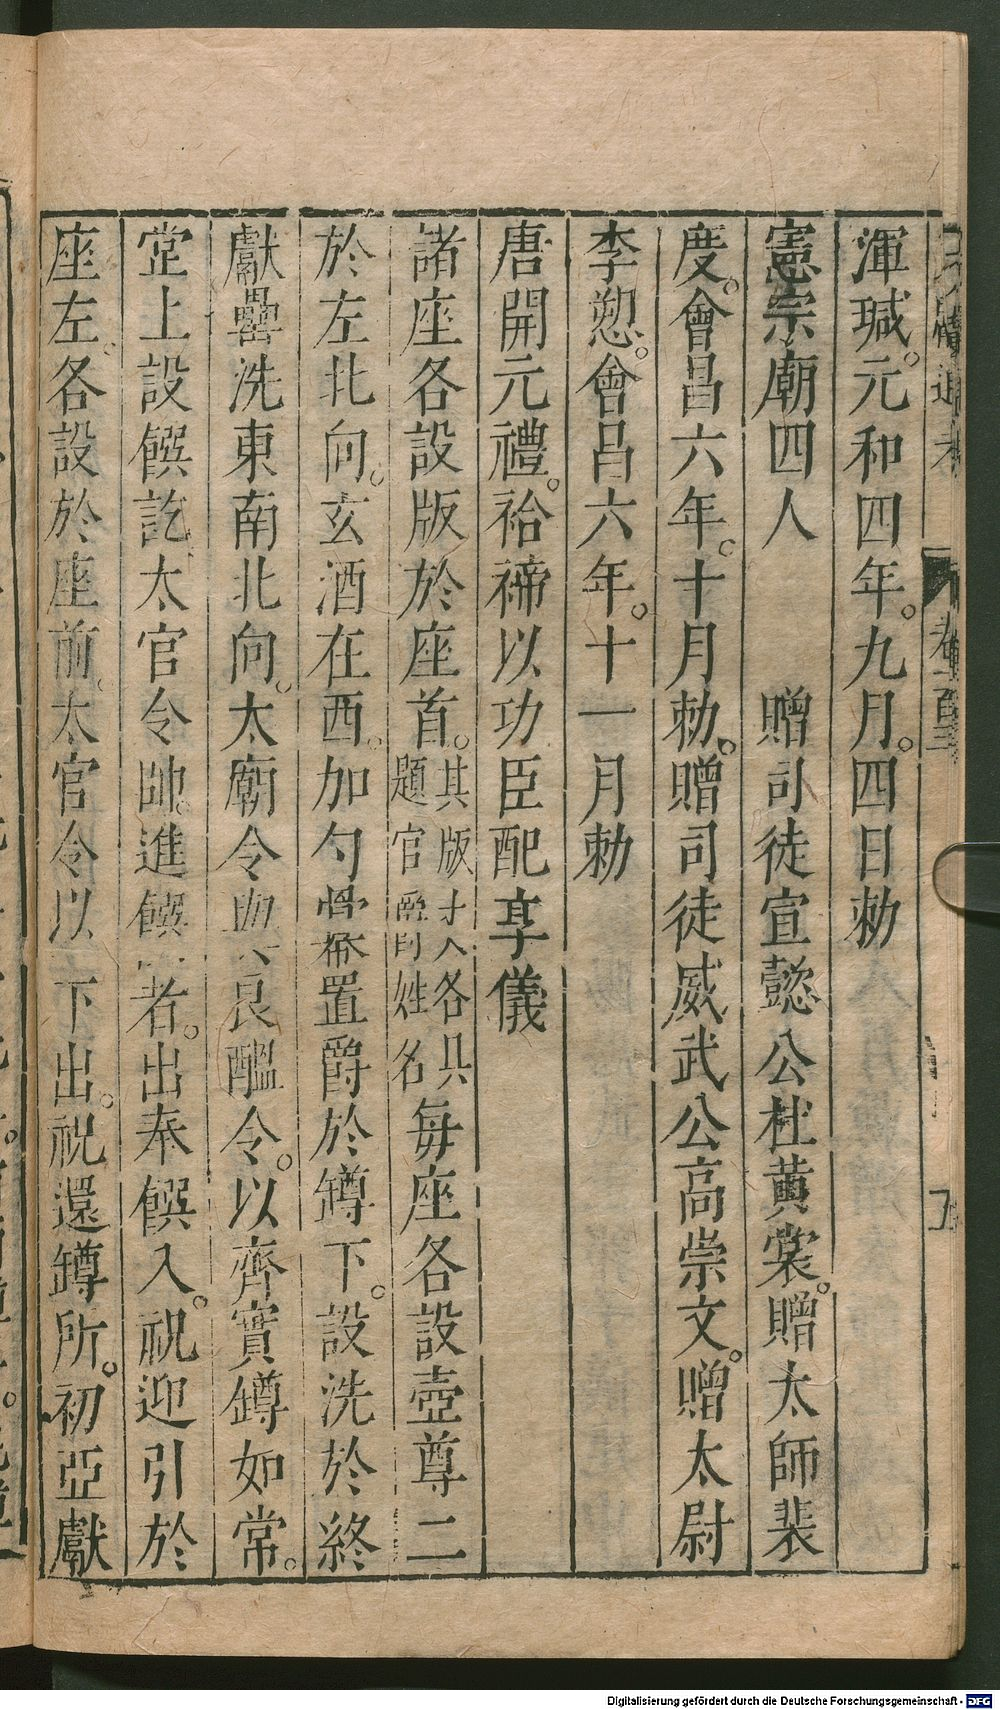 渾瑊。元和四年。九月。四日勅
憲宗廟四人　贈司徒宣懿公杜黄裳。贈太師裴
度。會昌六年。十月勅。贈司徒威武公高崇文。贈太尉
李愬。會昌六年。十一月勅
唐開元禮。祫禘以功臣配享儀
諸座各設版於座首。其版寸各具題官爵姓名每座各設壺尊二
於左北向。玄酒在西。加勺冪置爵於罇下。設洗於終
獻罍洗東南北向。太廟令與良醞令。以齊實罇如常。
堂上設饌訖太官令帥進饌者。出奉饌入。祝迎引於
座左。各設於座前。太官令以下出。祝還罇所。初亞獻
Digitalisierung gefördert durch die Deutsche Forschungsgemeinschaft - DFG